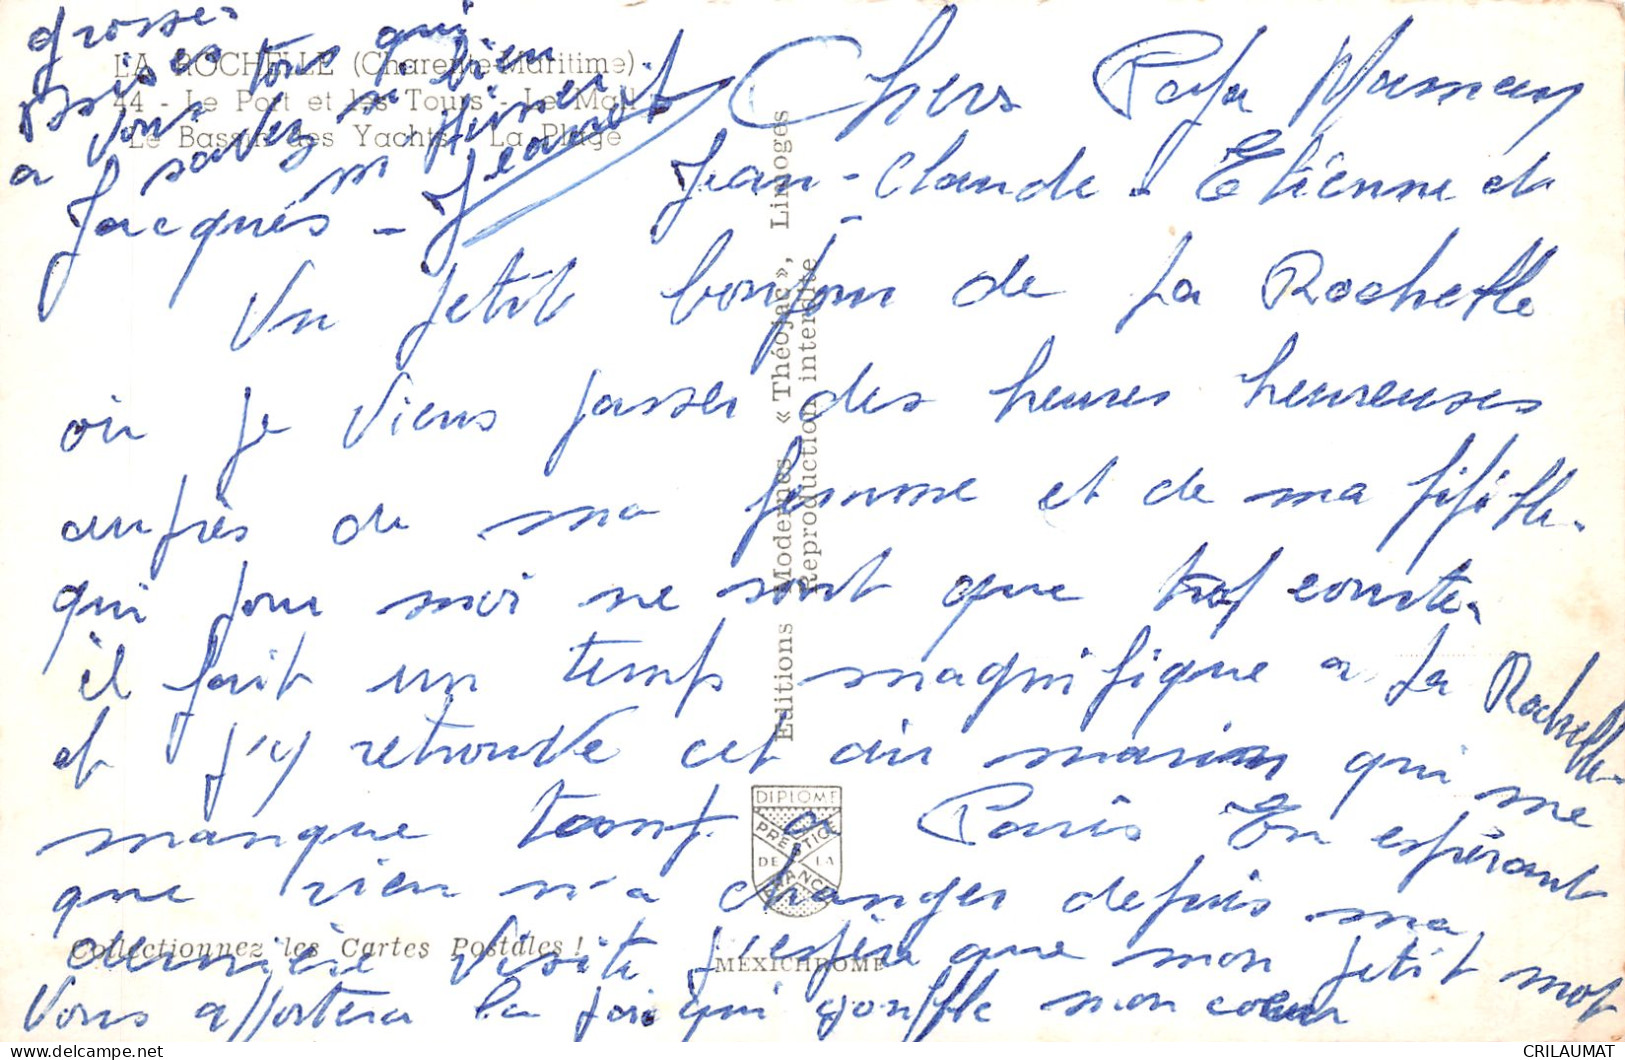 LA ROCHELLE (Charente-Maritime)
44 - Le Port et les Tours - Le Mail
Le Bassin des Yachts - La Plage
Chers Papa Maman
Jean-Claude - Etienne et
Jacques -
Un petit bonjour de La Rochelle
où je viens passer des heures heureuses
auprès de ma femme et de ma fifille.
qui pour moi ne sont que trop courte.
il fait un temps magnifique a La Rochelle
et j'y retrouve cet air marin qui me
manque tant a Paris En espérant
que rien n'a changer depuis ma
dernière visite j'espère que mon petit mot
Vous apportera la joie qui gonfle mon coeur
grosses
Bises
a tous qui
savez si bien
m'aimer
Jeannot
Editions Modernes « Théojac », Limoges
Reproduction interdite
DIPLOME
PRESTIGE
DE LA
FRANCE
Collectionnez les Cartes Postales !
MEXICHROME
CRILAUMAT